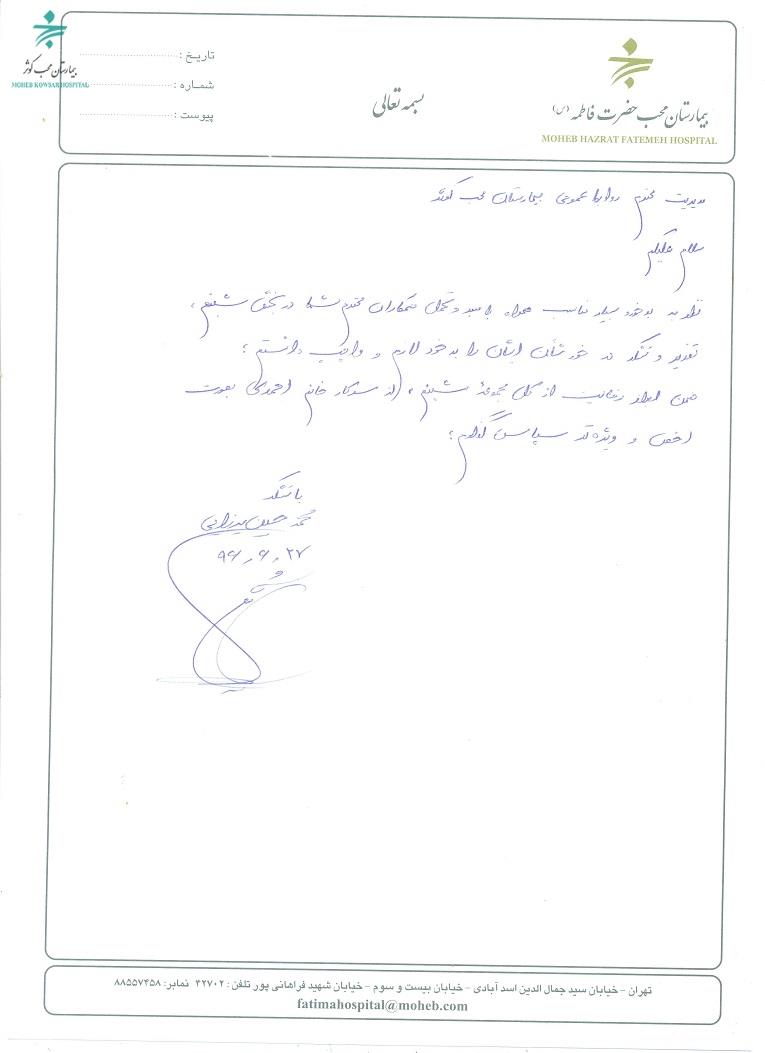 بیمارستان محب کوثر
MOHEB KOWSAR HOSPITAL
تاریخ :
شماره :
پیوست :
بسمه تعالی
بیمارستان محب حضرت فاطمه (س)
MOHEB HAZRAT FATEMEH HOSPITAL
مدیریت محترم روابط عمومی بیمارستان محب کوثر
سلام علیکم
نظر به برخورد بسیار مناسب همراه با صبر و تحمل همکاران محترم شما در بخش شیفت،
تقدیر و تشکر در خور شأن ایشان را بر خود لازم و واجب دانستم؛
ضمن ابراز رضایت از کل مجموعه شیفت، از سرکار خانم احمدی بصورت
اخص و ویژه تر سپاس گذارم؛
با تشکر
محمد حسین
۹۶,۶,۲۷
تهران - خیابان سید جمال الدین اسد آبادی - خیابان بیست و سوم - خیابان شهید فراهانی پور تلفن : ۴۲۷۰۲ نمابر: ۸۸۵۵۷۴۵۸
fatimahospital@moheb.com